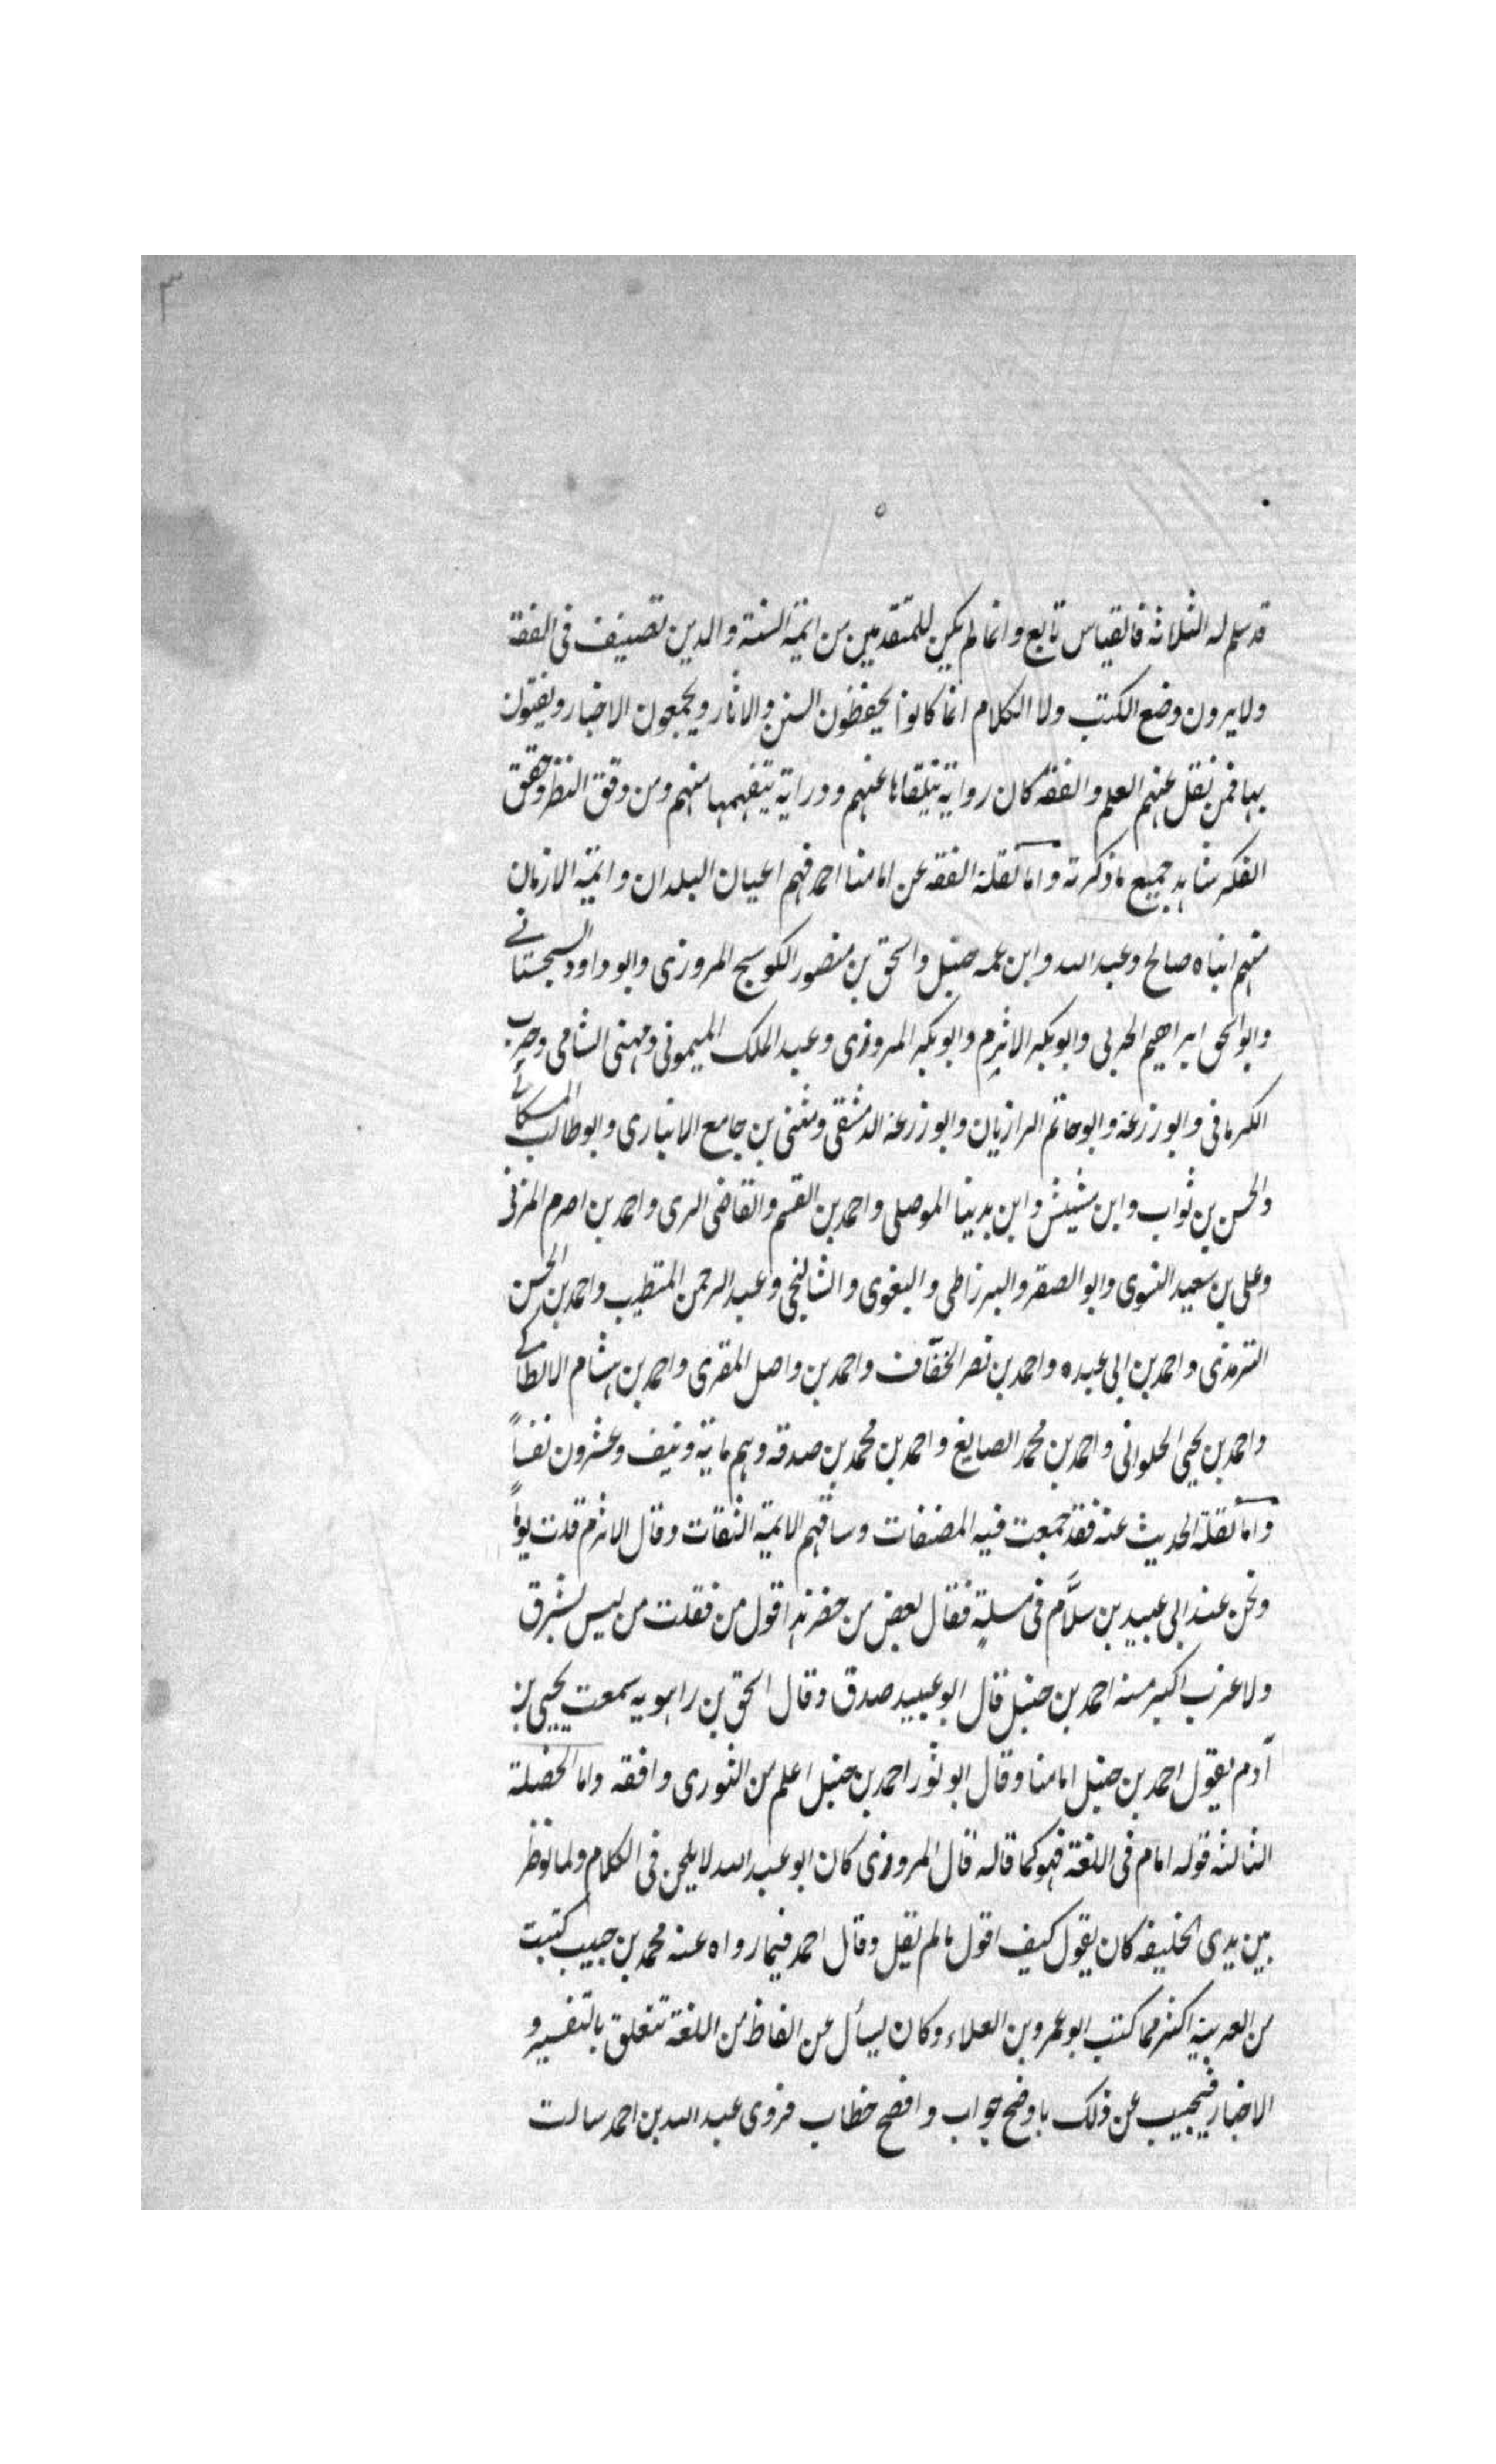 ٣
قد سلم له الثلاثة فالقياس تابع وانما لم يكن للمتقدمين من ائمة السنة والدين تصنيف فى الفقه
ولا يرون وضع الكتب ولا الكلام انما كانوا يحفظون السنن والاثار ويجمعون الاخبار ويفتون
بها فمن نقل عنهم العلم والفقه كان رواية يتلقاها عنهم ودراية يتفهمها منهم ومن دقق النظر وحقق
الفكر شاهد جميع ما ذكرته واما نقلة الفقه عن امامنا احمد فهم اعيان البلدان وائمة الازمان
منهم ابناه صالح وعبد الله وابن عمه حنبل واسحق بن منصور الكوسج المروزى وابو داود السجستانے
وابو اسحق ابراهيم الحربى وابو بكر الاثرم وابو بكر المروزى وعبد الملك الميمونى ومهنى الشامى وحرب
الكرمانى وابو زرعة وابو حاتم الرازيان وابو زرعة الدمشقى ومثنى بن جامع الانبارى وابو طالب المسكانے
والحسن بن ثواب وابن مشيش وابن بدينا الموصلى واحمد بن القسم والقاضى البرى واحمد بن اصرم المزنى
وعلى بن سعيد النسوى وابو الصقر والبرزاطى والبغوى والشالنجى وعبد الرحمن المتطبب واحمد بن الحسن
الترمذى واحمد بن ابى عبده واحمد بن نصر الخفّاف واحمد بن واصل المقرى واحمد بن هشام الانطاكے
واحمد بن يحيى الحلوانى واحمد بن محمد الصايغ واحمد بن محمد بن صدقه وهم ماية ونيف وعشرون نفساً
واما نقلة الحديث عنه فقد جمعت فيه المصنفات وساقهم الائمة الثقات وقال الاثرم قلت يوماً
ونحن عند ابى عبيد بن سلَّام فى مسلةٍ فقال بعض من حضر هذا قول من فقلت من ليس بشرق
ولا غرب اكبر منه احمد بن حنبل قال ابو عبيد صدق وقال اسحق بن راهويه سمعت يحيى بن
آدم يقول احمد بن حنبل امامنا وقال ابو ثور احمد بن حنبل اعلم من الثورى وافقه واما الخصلة
الثالثة قوله امام فى اللغة فهو كما قاله قال المروزى كان ابو عبد الله لا يلحن فى الكلام ولما نوظر
بين يدى الخليفه كان يقول كيف اقول ما لم يقل وقال احمد فيما رواه عنه محمد بن حبيب كتبت
من العربية اكثر مما كتب ابو عمرو بن العلاء وكان يسأل عن الفاظ من اللغة تتعلق بالتفسير و
الاخبار فيجيب عن ذلك باوضح جواب وافصح خطاب فروى عبد الله بن احمد سالت